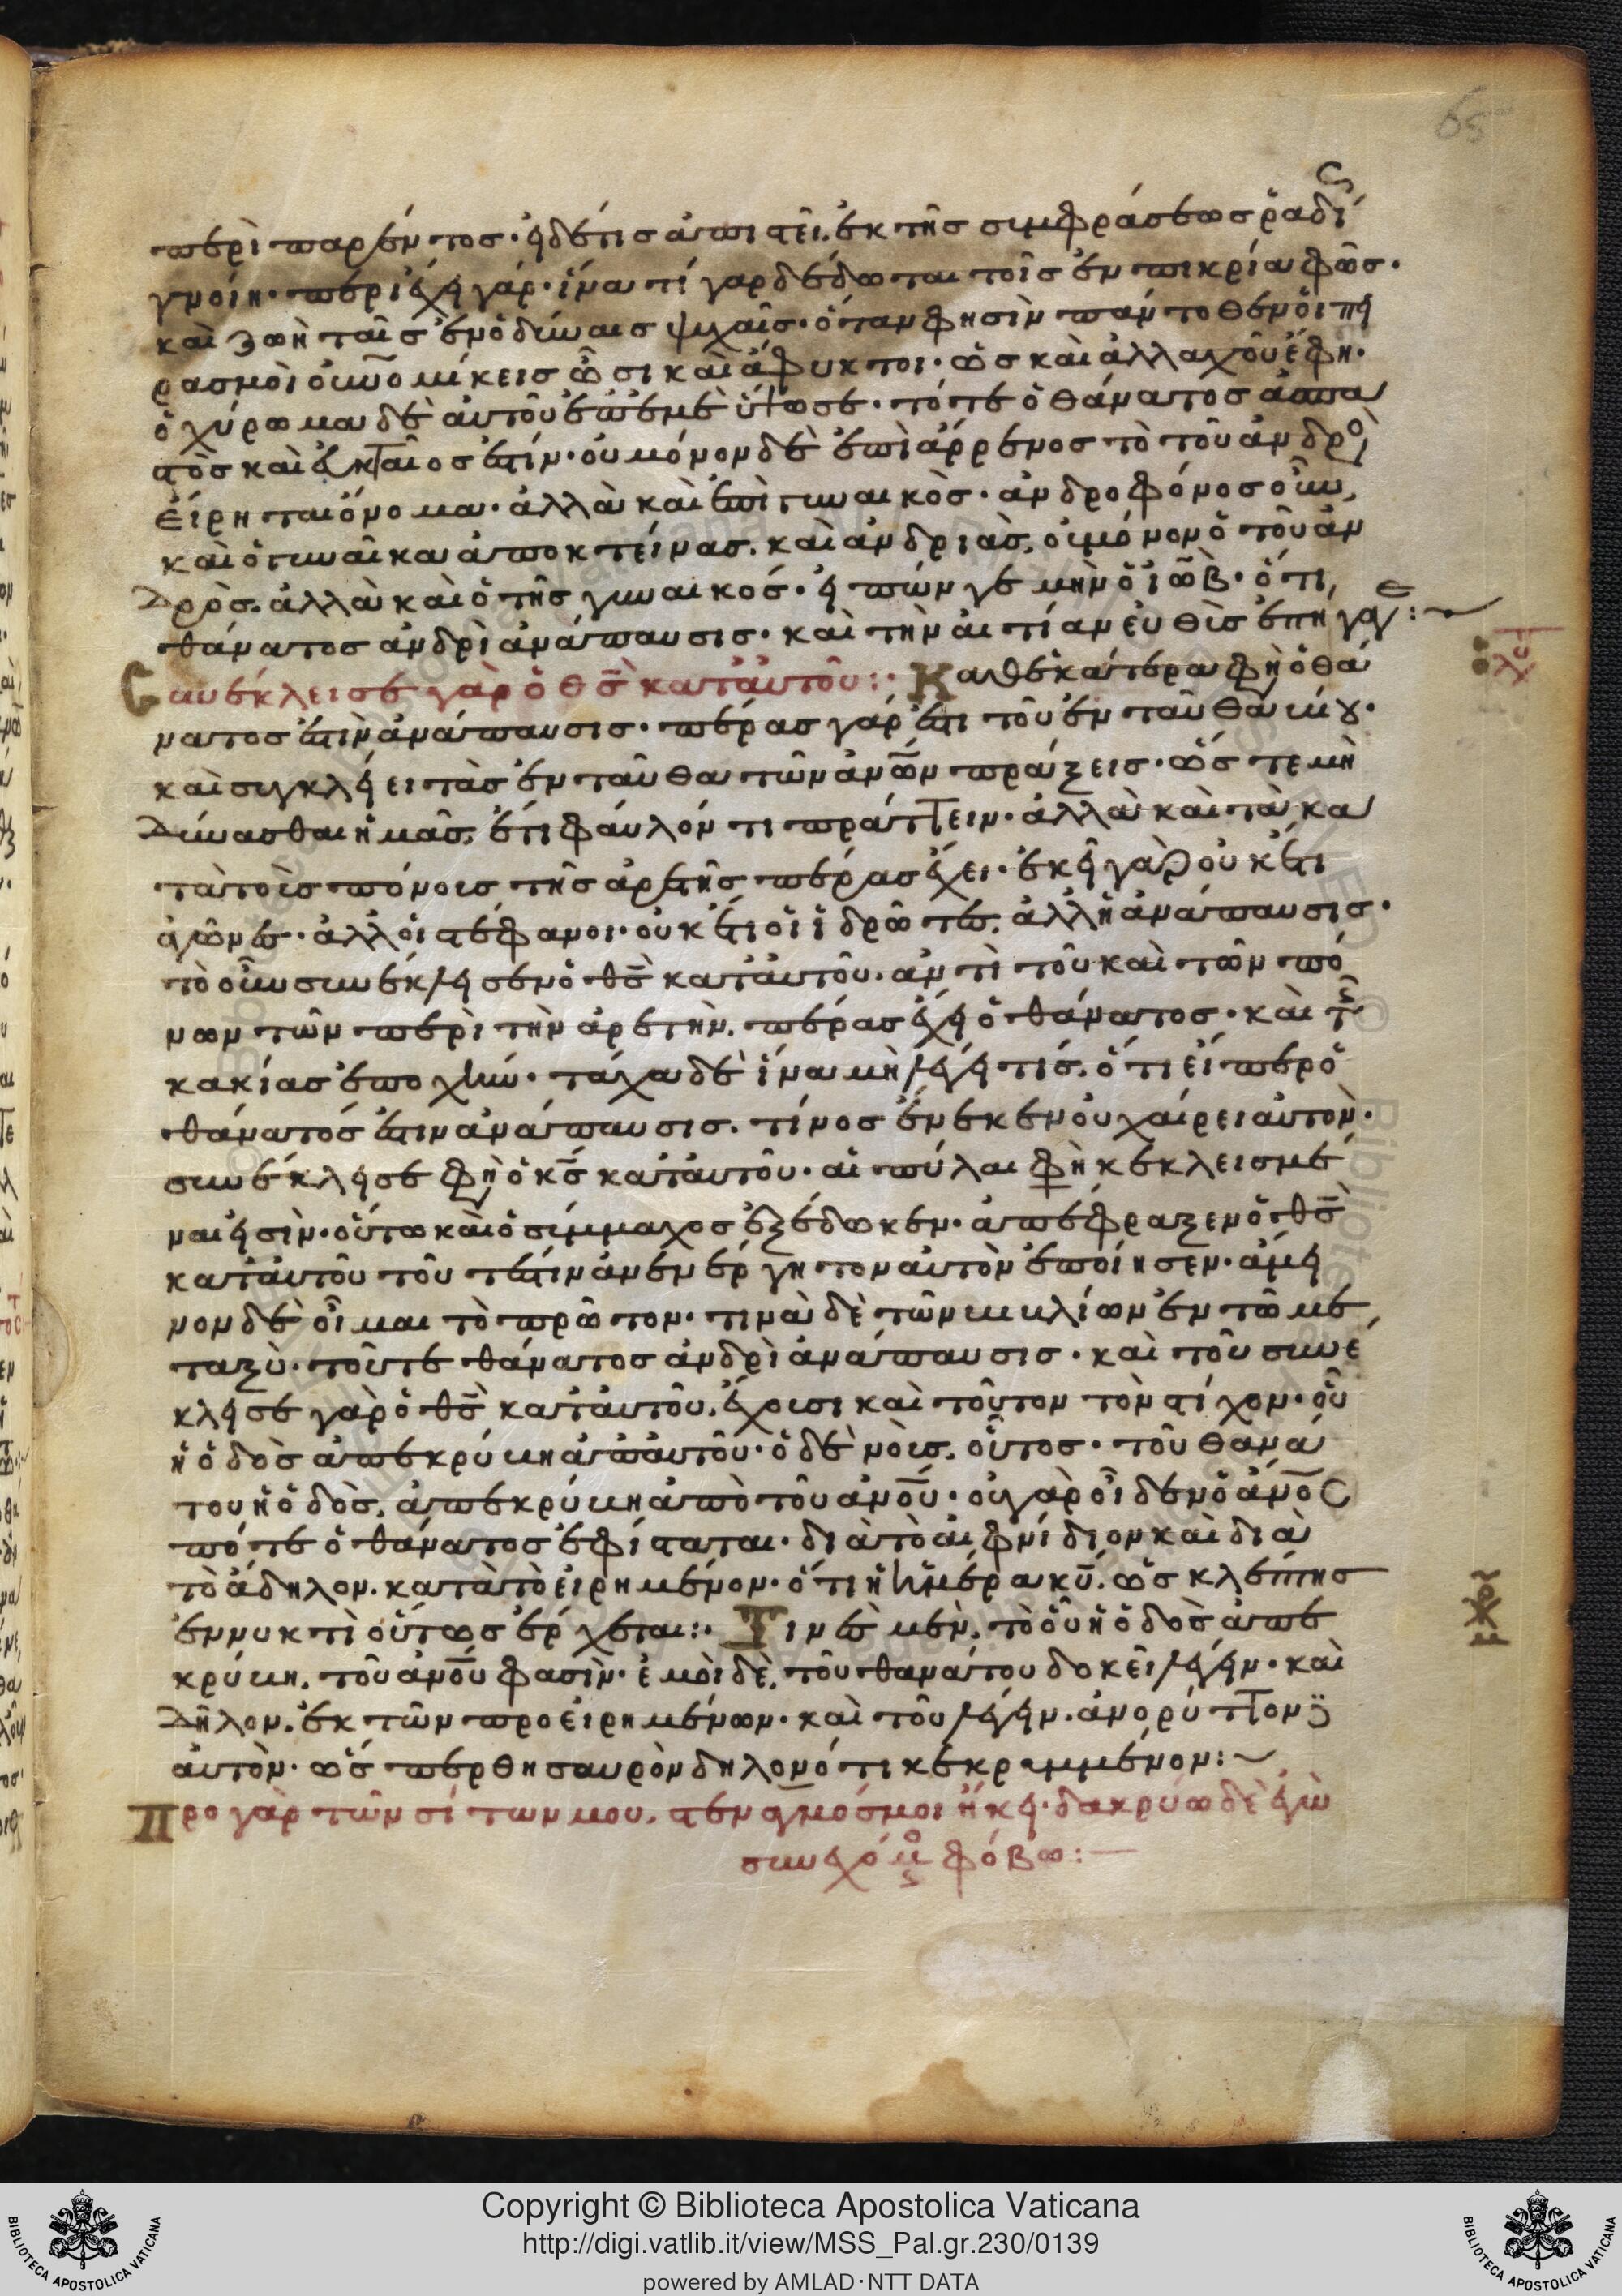 65
περὶ παρέντος· εἰ δέ τις ἀπιστεῖ. ἐκ τῆς συμφράσεως ῥαδίως
γνοίη· περιέχει γάρ· ἵνα τί γαρ δέδοται τοῖς ἐν πικρία φῶς·
καὶ ζωὴ ταῖς ἐν ὀδύναις ψυχαῖς· ὅταν φησὶν πάντοθεν οἱ πει
ρασμοὶ κύκλω καὶ ἄφυκτοι· ὡς καὶ ἀλλαχοῦ ἔφη·
ὀχύρωμα δὲ αὐτοῦ ἐπ' ἐμὲ ὕψωσε· τότε ὁ θάνατος ἀσπα
στὸς καὶ εὐκταῖός ἐστιν· οὐ μόνον δὲ ἐπὶ ἄρρενος τὸ τοῦ ἀνδρὸς
εἴρηται ὄνομα· ἀλλὰ καὶ ἐπὶ γυναικὸς· ἀνδροφόνος οὖν
καὶ ὁ γυναῖκα ἀποκτείνας. καὶ ἀνδριὰς. οὐ μόνον ὁ τοῦ ἀν
δρὸς. ἀλλὰ καὶ ὁ τῆς γυναικός· εἰπών γε μὴν ὁ ἰὼβ· ὅτι
θάνατος ἀνδρὶ ἀνάπαυσις· καὶ τὴν αἰτίαν εὐθὺς ἐπήγαγε:
Συνέκλεισε γὰρ ὁ θς κατ' αὐτοῦ: Καθ' ἑκάτερα φη ὁ θά
νατος ἐστὶν ἀνάπαυσις· πέρας γάρ ἐστι τοῦ ἐνταῦθα βίου·
καὶ συγκλείει τὰς ἐνταῦθα τῶν ἀνων πράξεις· ὥς τε μὴ
δύνασθαι ἡμᾶς. ἔτι φαῦλόν τι πράττειν· ἀλλὰ καὶ τὰ κα
τὰ τοὺς πόνους τῆς ἀρετῆς πέρας ἔχει· ἐκεῖ γὰρ οὐκ ἔτι
ἀγῶνες· ἀλλ' οἱ στέφανοι· οὐκ ἔτι οἱ ἱδρῶτες. ἀλλ' ἡ ἀνάπαυσις·
τὸ οὖν συνέκλεισεν ὁ θς κατ' αὐτοῦ. ἀντὶ τοῦ καὶ τῶν πό
νων τῶν περὶ τὴν ἀρετὴν. πέρας ἔχει ὁ θάνατος· καὶ τῆς
κακίας ἐποχὴν· τάχα δὲ ἵνα μὴ λέγει τίς. ὅτι εἴπερ ὁ
θάνατός ἐστιν ἀνάπαυσις. τίνος ἕνεκεν οὐχ αἱρεῖ αὐτὸν·
συνέκλεισε φη ὁ κς κατ' αὐτοῦ· αἱ πύλαι φη κεκλεισμέ
ναι εἰσὶν· οὕτω καὶ ὁ σύμμαχος ἐξέδωκεν· ἀπέφραξεν ὁ θς
κατ' αὐτοῦ τουτέστιν ἀνενέργητον αὐτὸν ἐποίησεν· ἄμει
νον δὲ οἶμαι τὸ πρῶτον· τινὰ δὲ τῶν βιβλίων ἐν τῶ με
ταξὺ· τοῦ τε θάνατος ἀνδρὶ ἀνάπαυσις· καὶ τοῦ συνέ
κλεισε γὰρ ὁ θς κατ' αὐτοῦ. ἔχουσι καὶ τοῦτον τὸν στίχον· οὗ
ἡ ὁδὸς ἀπεκρύβη ἀπ' αὐτοῦ· ὁ δὲ νοῦς. οὗτος· τοῦ θανά
του ἡ ὁδὸς. ἀπεκρύβη ἀπὸ τοῦ ἀνου· οὐ γὰρ οἶδεν ὁ ἀνος
πότε ὁ θάνατος ἐφίσταται· διὰ τὸ αἰφνίδιον καὶ διὰ
τὸ ἄδηλον. κατὰ τὸ εἰρημένον· ὅτι ἡ ἡμέρα κυ. ὡς κλέπτης
ἐν νυκτὶ οὕτως ἔρχεται: Τινὲς μὲν. τὸ οὗ ἡ ὁδὸς ἀπε
κρύβη. τοῦ ἀνου φασὶν· ἐμοὶ δὲ. τοῦ θανάτου δοκεῖ λέγειν· καὶ
δῆλον. ἐκ τῶν προειρημένων· καὶ τοῦ λέγειν. ἀνορύττοντες
αὐτὸν· ὥς περ θησαυρὸν δηλονότι κεκραμμένον:
Προ γὰρ τῶν σίτων μου. στεναγμός μοι ἥκει· δακρύω δὲ ἐγὼ
συνεχόμενος φόβω:
Copyright © Biblioteca Apostolica Vaticana
http://digi.vatlib.it/view/MSS_Pal.gr.230/0139
powered by AMLAD·NTT DATA
BIBLIOTECA APOSTOLICA VATICANA
BIBLIOTECA APOSTOLICA VATICANA